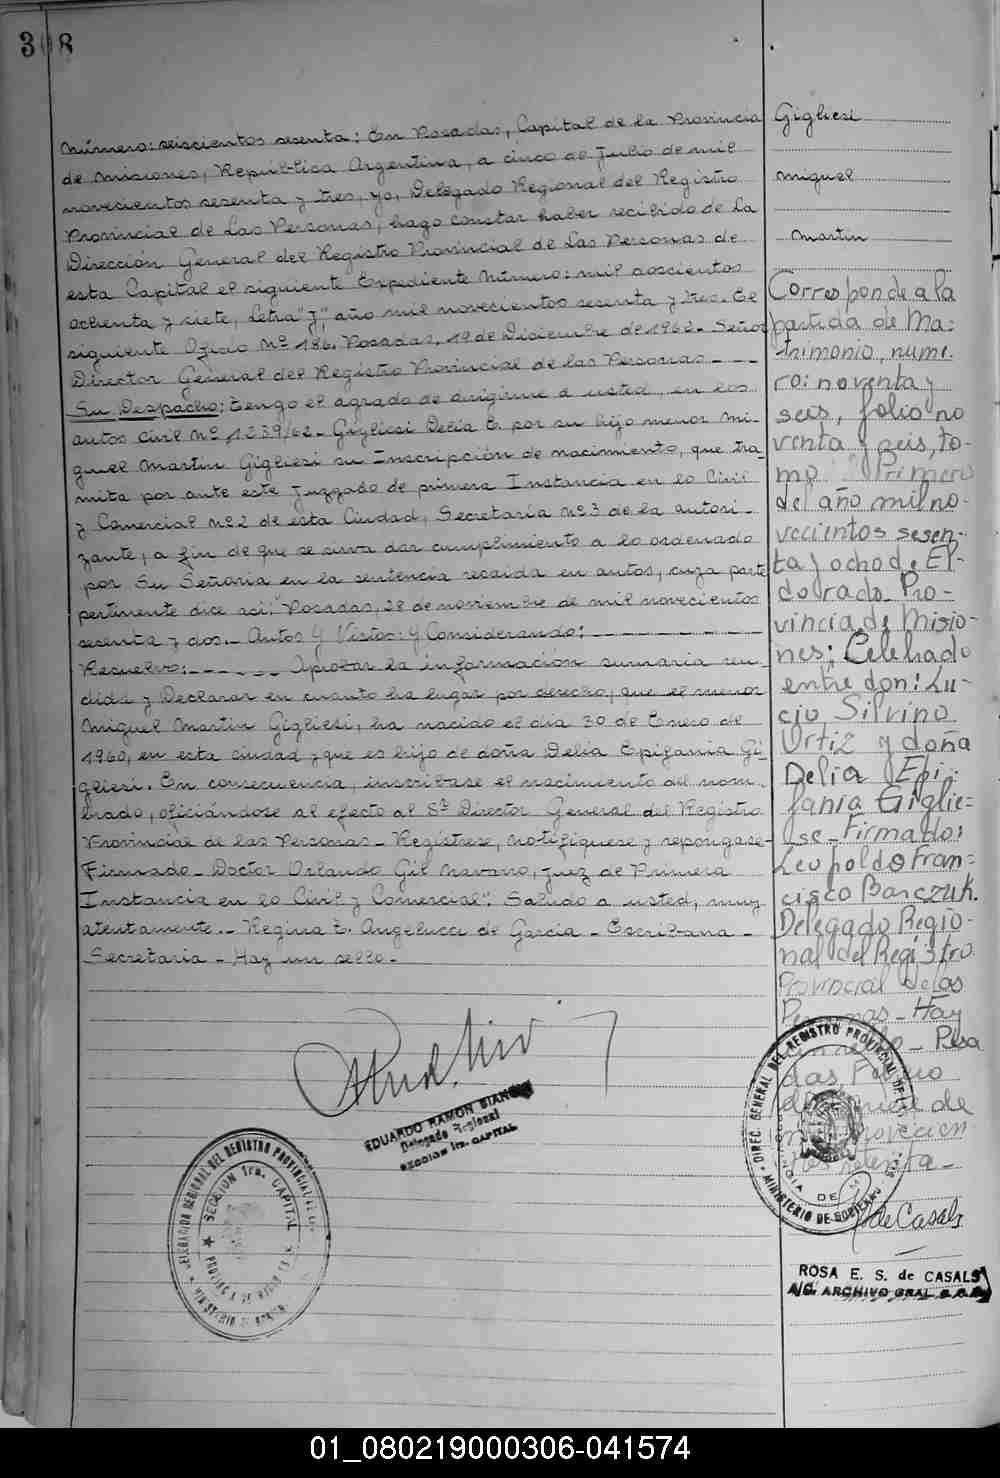 308
Número: seiscientos sesenta: En Posadas, Capital de la Provincia
de Misiones, República Argentina, a cinco de Julio de mil
novecientos sesenta y tres, yo, Delegado Regional del Registro
Provincial de Las Personas, hago constar haber recibido de La
Dirección General del Registro Provincial de Las Personas de
esta Capital el siguiente Expediente Número: mil doscientos
ochenta y siete, Letra "J", año mil novecientos sesenta y tres. El
siguiente Oficio Nº 186. Posadas, 19 de Diciembre de 1962. Señor
Director General del Registro Provincial de las Personas - - -
Su Despacho: Tengo el agrado de dirigirme a usted, en los
autos civil Nº 1239/62 - Gigliesi Delia E. por su hijo menor Mi-
guel Martin Gigliesi su Inscripción de nacimiento, que tra-
mita por ante este Juzgado de primera Instancia en lo Civil
y Comercial nº 2 de esta Ciudad, Secretaria nº 3 de la autori-
zante, a fin de que se sirva dar cumplimiento a lo ordenado
por Su Señoria en la sentencia recaida en autos, cuya parte
pertinente dice asi: "Posadas, 28 de noviembre de mil novecientos
sesenta y dos. - Autos Y Vistos: Y Considerando: - - - - - -
Resuelvo: - - - - - Aprobar la información sumaria ren-
dida y Declarar en cuanto ha lugar por derecho, que el menor
Miguel Martin Gigliesi, ha nacido el dia 30 de Enero de
1960, en esta ciudad y que es hijo de doña Delia Epifania Gi-
gliesi. En consecuencia, inscribase el nacimiento del nom-
brado, oficiándose al efecto al Sr. Director General del Registro
Provincial de las Personas - Regístrese, notifíquese y repongase -
Firmado - Doctor Orlando Gil Navarro, Juez de Primera
Instancia en lo Civil y Comercial". Saludo a usted, muy
atentamente. - Regina T. Angelucci de Garcia - Escribana -
Secretaria - Hay un sello -
EDUARDO RAMON BIANCHI
Delegado Regional
SECCION 1ra. CAPITAL
DELEGACION REGIONAL DEL REGISTRO PROVINCIAL DE LAS
SECCION 1ra. CAPITAL
PROVINCIA DE MISIONES
MINISTERIO DE GOBIERNO
Gigliesi
Miguel
Martin
Corresponde a la
partida de Ma-
trimonio, nume-
ro: noventa y
seis, folio no
venta y seis, to-
mo Primero
del año mil no-
vecientos sesen-
ta y ocho de El-
dorado Pro-
vincia de Misio-
nes; Celebrado
entre don: Lu-
cio Silvino
Ortiz y doña
Delia Epi-
fania Giglie-
se - Firmado:
Leopoldo Fran-
cisco Barczuk.
Delegado Regio-
nal del Registro
Provincial de las
Personas - Hay
un sello - Posa
das, Febrero
de
mil novecien
tos setenta -
DIREC. GENERAL DEL REGISTRO PROVINCIAL DE LAS
MINISTERIO DE GOBIERNO
de Casals
ROSA E. S. de CASALS
A/C. ARCHIVO GRAL
01_080219000306-041574